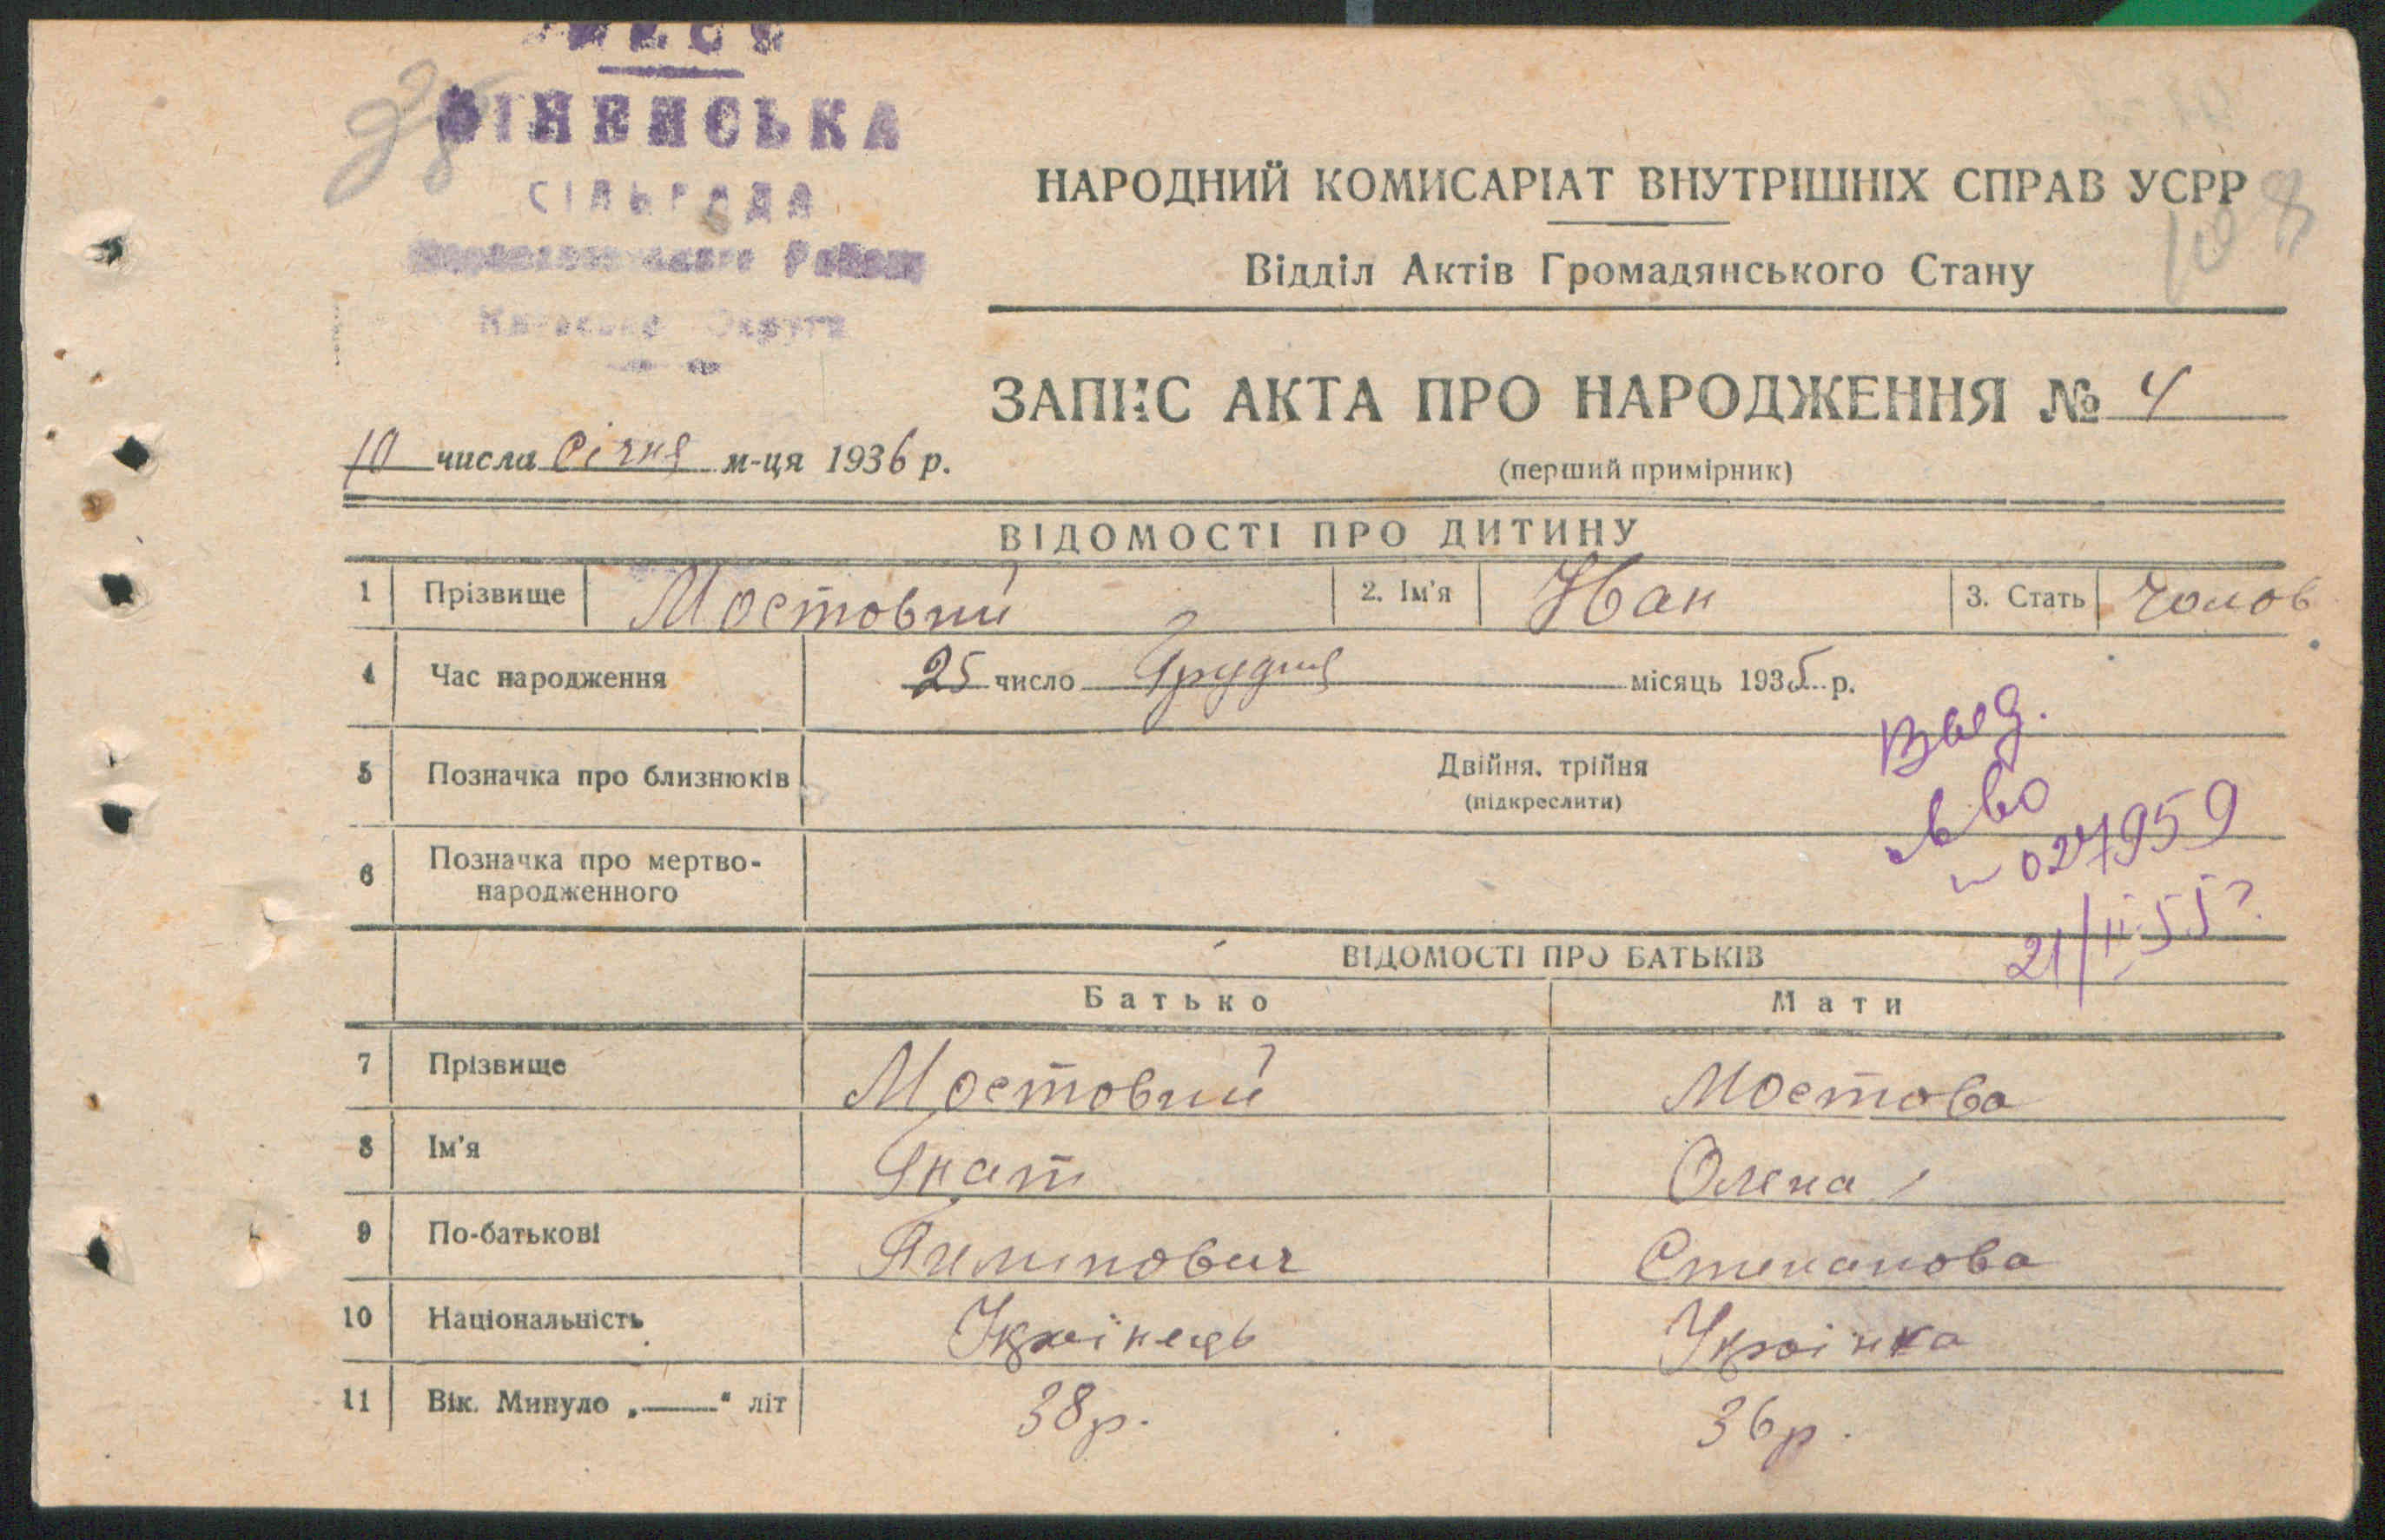 УСРР
ФІНЕВСЬКА
СІЛЬРАДА
Району
Округи
38
108
НАРОДНИЙ КОМИСАРІАТ ВНУТРІШНІХ СПРАВ УСРР
Відділ Актів Громадянського Стану
ЗАПИС АКТА ПРО НАРОДЖЕННЯ № 4
10 числа Січня м-ця 1936 р.
(перший примірник)
ВІДОМОСТІ ПРО ДИТИНУ
1 Прізвище Мостовий 2. Ім'я Іван 3. Стать Чолов
4 Час народження 25 число Грудня місяць 1935 р.
5 Позначка про близнюків Двійня, трійня
(підкреслити)
Выд.
6 Позначка про мертво-
народженного
027959
21/II.55г.
ВІДОМОСТІ ПРО БАТЬКІВ
Батько Мати
7 Прізвище Мостовий Мостова
8 Ім'я Гнат Олена
9 По-батькові Пилипович Степанова
10 Національність Українець Українка
11 Вік. Минуло „——" літ 38 р. 36 р.